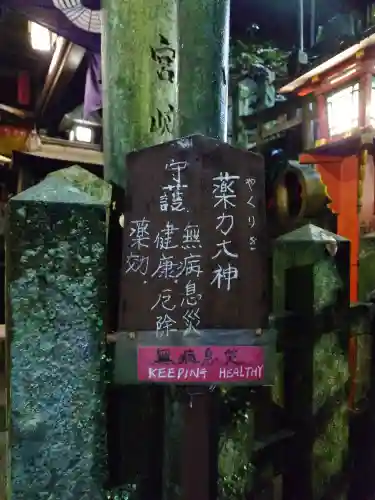 宮
やくりき
薬力大神
守護
無病息災
健康・厄除
薬効・
無病息災
KEEPING HEALTHY